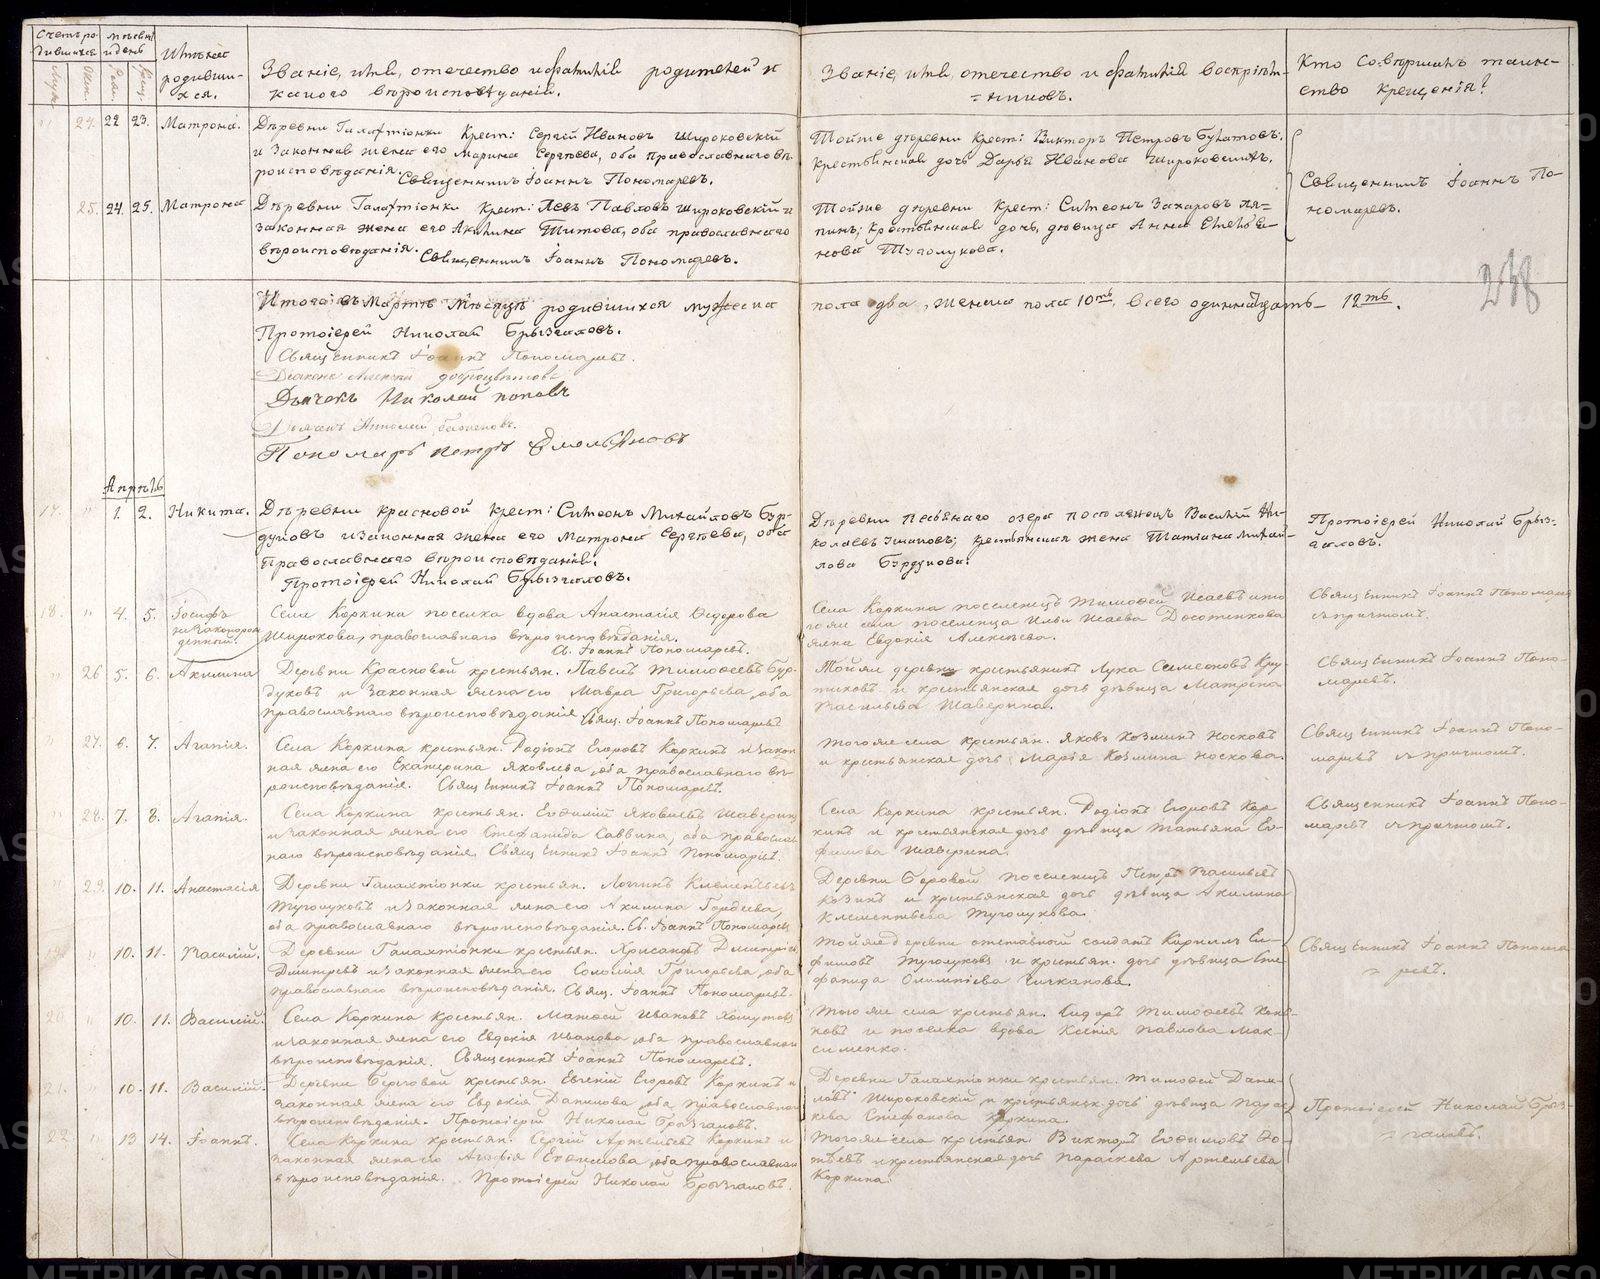 Счетъ ро-
дившихся
Мѣсяцъ
и день
Имена
родивши-
хся.
Званіе, имя, отечество и фамилія родителей и
какого вѣроисповѣданія.
Званіе, имя, отечество и фамилія воспріем-
=никовъ.
Кто совершалъ таин-
ство крещенія?
24. 22 23. Матрона.
Деревни Галактіонки Крест: Сергій Ивановъ Широковскій
и законная жена его Марина Сергѣева, оба православнаго вѣ-
роисповѣданія. Священникъ Іоаннъ Пономаревъ.
Тойже деревни Крест: Викторъ Петровъ Булатовъ.
Крестьянская дочь Дарья Иванова Широковскихъ.
Священникъ Іоаннъ По-
номаревъ.
25. 24. 25. Матрона
Деревни Галактіонки Крест: Левъ Павловъ Широковскій и
законная жена его Акилина Титова, оба православнаго
вѣроисповѣданія. Священникъ Іоаннъ Пономаревъ.
Тойже деревни Крест: Симеонъ Захаровъ Ля=
пинъ; крестьянская дочь, дѣвица Анна
нова Туголукова.
238
Итого въ Мартѣ мѣсяцѣ родившихся мужеска
пола два, женска пола 10ть, всего одиннадцать 12ть.
Протоіерей Николай Брызгаловъ.
Священникъ Іоаннъ Пономаревъ.
Діаконъ Алексей Доброцвѣтовъ
Дьячекъ Николай Поповъ
Николай
Пономарь Петръ Емельяновъ
Апрѣль
17. " 1. 2. Никита.
Деревни Красновой Крест: Симеонъ Михайловъ Бур-
дуковъ и законная жена его Матрона Сергѣева, оба
православнаго вѣроисповѣданія.
Протоіерей Николай Брызгаловъ.
Деревни Песьянаго озера поселенецъ Василій Ни-
колаевъ крестьянская жена Татіана Михай-
лова Бурдукова.
Протоіерей Николай Брыз-
галовъ.
18. " 4. 5. Іосифъ
незаконорож
денный.
Села Коркина поселка вдова Анастасія Ѳедорова
Широкова, православнаго вѣроисповѣданія.
С. Іоаннъ Пономаревъ.
Села Коркина поселенецъ Тимоѳей Исаевъ и то
гоже села поселенца Ильи Исаева Досотенкова
жена Евдокія Алексѣева.
Священникъ Іоаннъ Пономарев
съ причтомъ.
" 26 5. 6. Акилина
Деревни Красновой крестьян. Павелъ Тимоѳеевъ Бур-
дуковъ и законная жена его Мавра Григорьева, оба
православнаго вѣроисповѣданія. Свящ. Іоаннъ Пономаревъ
Тойже деревни крестьянинъ Лука Симеоновъ Кру
тиковъ и крестьянская дочь дѣвица Матрена
Васильева Шаверина.
Священникъ Іоаннъ Поно-
маревъ.
" 27. 6. 7. Агапія.
Села Коркина крестьян. Родіонъ Егоровъ Коркинъ и закон
ная жена его Екатерина Яковлева, оба православнаго вѣ-
роисповѣданія. Священникъ Іоаннъ Пономаревъ.
Тогоже села крестьян. Яковъ Козминъ Носковъ
и крестьянская дочь Марія Козмина Носкова.
Священникъ Іоаннъ Поно-
маревъ съ причтомъ.
" 28. 7. 8. Агапія.
Села Коркина крестьян. Евѳимій Яковлевъ Шаверинъ
и законная жена его Стефанида Саввина, оба православ
наго вѣроисповѣданія. Священникъ Іоаннъ Пономаревъ.
Села Коркина крестьян. Родіонъ Егоровъ Кор-
кинъ и крестьянская дочь дѣвица Татьяна Ев-
фимова Шаверина.
Священникъ Іоаннъ Поно-
маревъ съ причтомъ.
" 29. 10. 11. Анастасія
Деревни Галактіонки крестьян. Логгинъ Клементьевъ
Туголуковъ и законная жена его Акилина Гордѣева,
оба православнаго вѣроисповѣданія. Св. Іоаннъ Пономаревъ
Деревни Боровой поселенецъ Петръ Васильевъ
Козинъ и крестьянская дочь дѣвица Акилина
Клементьева Туголукова.
19. " 10. 11. Василій.
Деревни Галактіонки крестьян. Хрисанфъ Дмитріев
Дмитріевъ и законная жена его Соломія Григорьева, оба
православнаго вѣроисповѣданія. Свящ. Іоаннъ Пономаревъ.
Тойже деревни отставной солдатъ Кириллъ Ев-
фимовъ Туголуковъ и крестьян. дочь дѣвица Сте
фанида Олимпіева Гичканова.
Священникъ Іоаннъ Понома
= ревъ.
20. " 10. 11. Василій.
Села Коркина крестьян. Матѳей Ивановъ Хомутовъ
и законная жена его Евдокія Иванова, оба православнаго
вѣроисповѣданія. Священникъ Іоаннъ Пономаревъ.
Тогоже села крестьян. Сидоръ Тимоѳеевъ
новъ и поселка вдова Ксенія Павлова Мак-
сименко.
21. " 10. 11. Василій.
Деревни Береговой крестьян. Евгеній Егоровъ Коркинъ и
законная жена его Евдокія Данилова, оба православнаго
вѣроисповѣданія. Протоіерей Николай Брызгаловъ.
Деревни Галактіонки крестьян. Тимоѳей Дани-
ловъ Широковскій и крестьянск. дочь дѣвица Парас
кева Стефанова Коркина.
Протоіерей Николай Брыз-
= галовъ.
22. " 13 14. Іоаннъ.
Села Коркина крестьян. Сергій Артемьевъ Коркинъ и
законная жена его Агафія Евѳимова, оба православнаго
вѣроисповѣданія. Протоіерей Николай Брызгаловъ.
Тогоже села крестьян. Викторъ Евѳимовъ Фо-
тѣевъ и крестьянская дочь Параскева Артемьева
Коркина.
METRIKI.GASO.URAL.RU